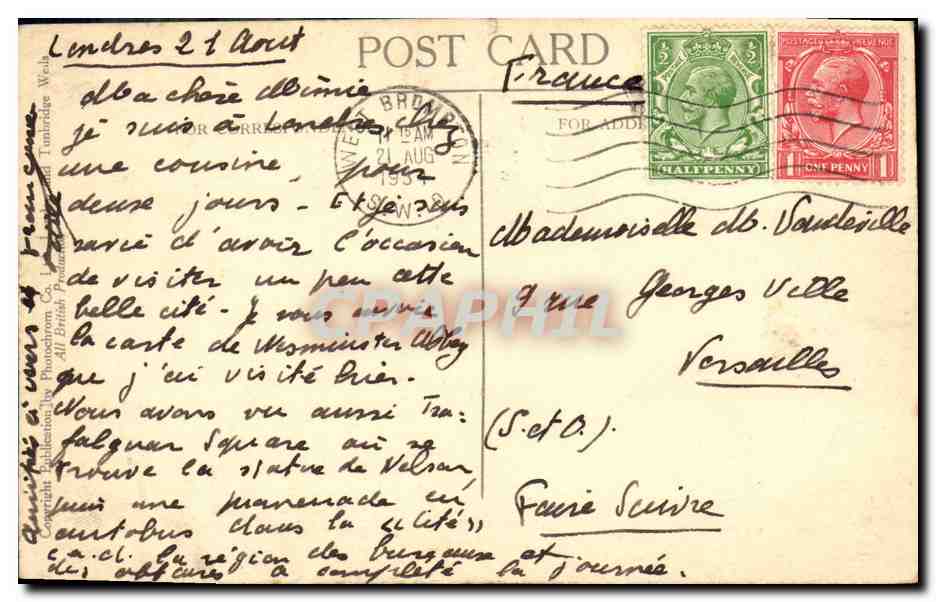 Londres 21 Aout
POST CARD
France
FOR CORRESPONDENCE
FOR ADD
WEST BROMPTON
11 15 AM
21 AUG
193
S.W.
½ ½
HALFPENNY
POSTAGE REVENUE
1 1
ONE PENNY
Ma chère Mimie
je suis à Londres chez
une cousine, pour
deuse jours. Et je suis
ravie d'avoir l'occasion
de visiter un peu cette
belle cité. Je vous envoie
la carte de Wesminster Abbey
que j'ai visité hier.
Nous avons vu aussi Tra-
falguar Square où se
trouve la statue de Nelson,
puis une promenade en
autobus dans la "Cité"
c.a.d. la région des bureaux et
des affaires a complété la journée.
amitiés à vers et Francine
Copyright Publication by Photochrom Co. L and Tunbridge Wells
All British Production
Mademoiselle M. Vaudeville
9 rue Georges Ville
Versailles
(S. et O.).
Faire Suivre
CPAPHIL